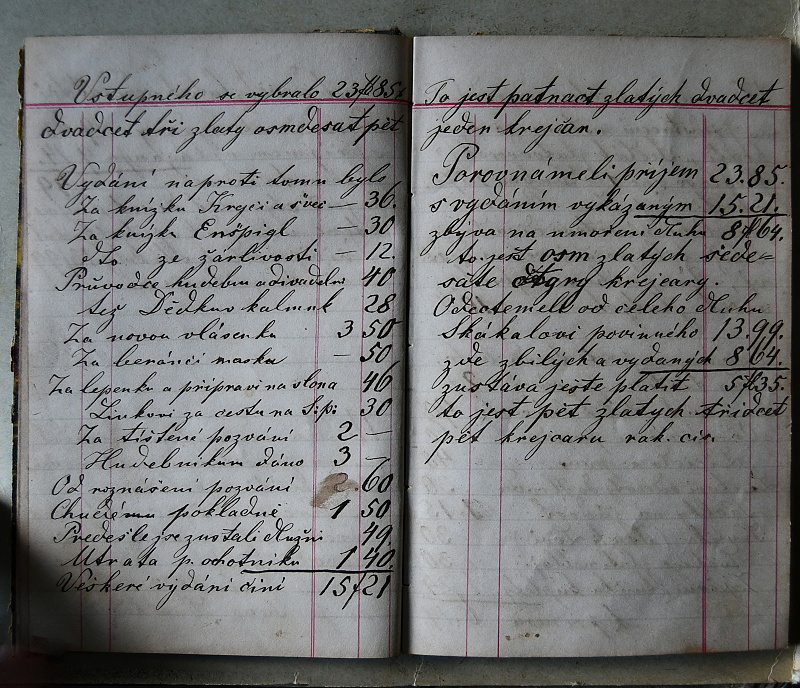 Vstupného se vybralo 23 fl 85.
dvadcet tři zlaty osmdesat pět
Vydání naproti tomu bylo
Za knížku Krejcí a švec — 36.
Za knížku Enšpigl — 30
dto ze žárlivosti — 12.
Průvodce hudebnu a divadelni 40
též Dědkuv kalmuk 28
Za novou vlásenku 3 50
Za beránčí masku — 50
Za lepenku a připravi na slona 46
Linkovi za cestu na S:p: 30
Za tištené pozvání 2 —
Hudebnikum dáno 3 —
Od roznášení pozvání 60
pokladne 1 50
Predešle jse zustali dlužni 49
Utrata p. ochotniku 1 40.
Veškeré vydáni čini 15 f 21
To jest patnact zlatých dvadcet
jeden krejcar.
Porovnámeli príjem 23.85.
s vydáním vykázanym 15.21.
zbyva na umoření dluhu 8 fl 64.
to jest osm zlatych šede=
sáte čtyry krejcary.
Odectemeli od celeho dluhu
Skákalovi povinného 13.99.
zde zbilých a vydaných 8 64.
zustáva ješte platit 5 fl 35.
to jest pět zlatych třidcet
pět krejcaru rak. čis.